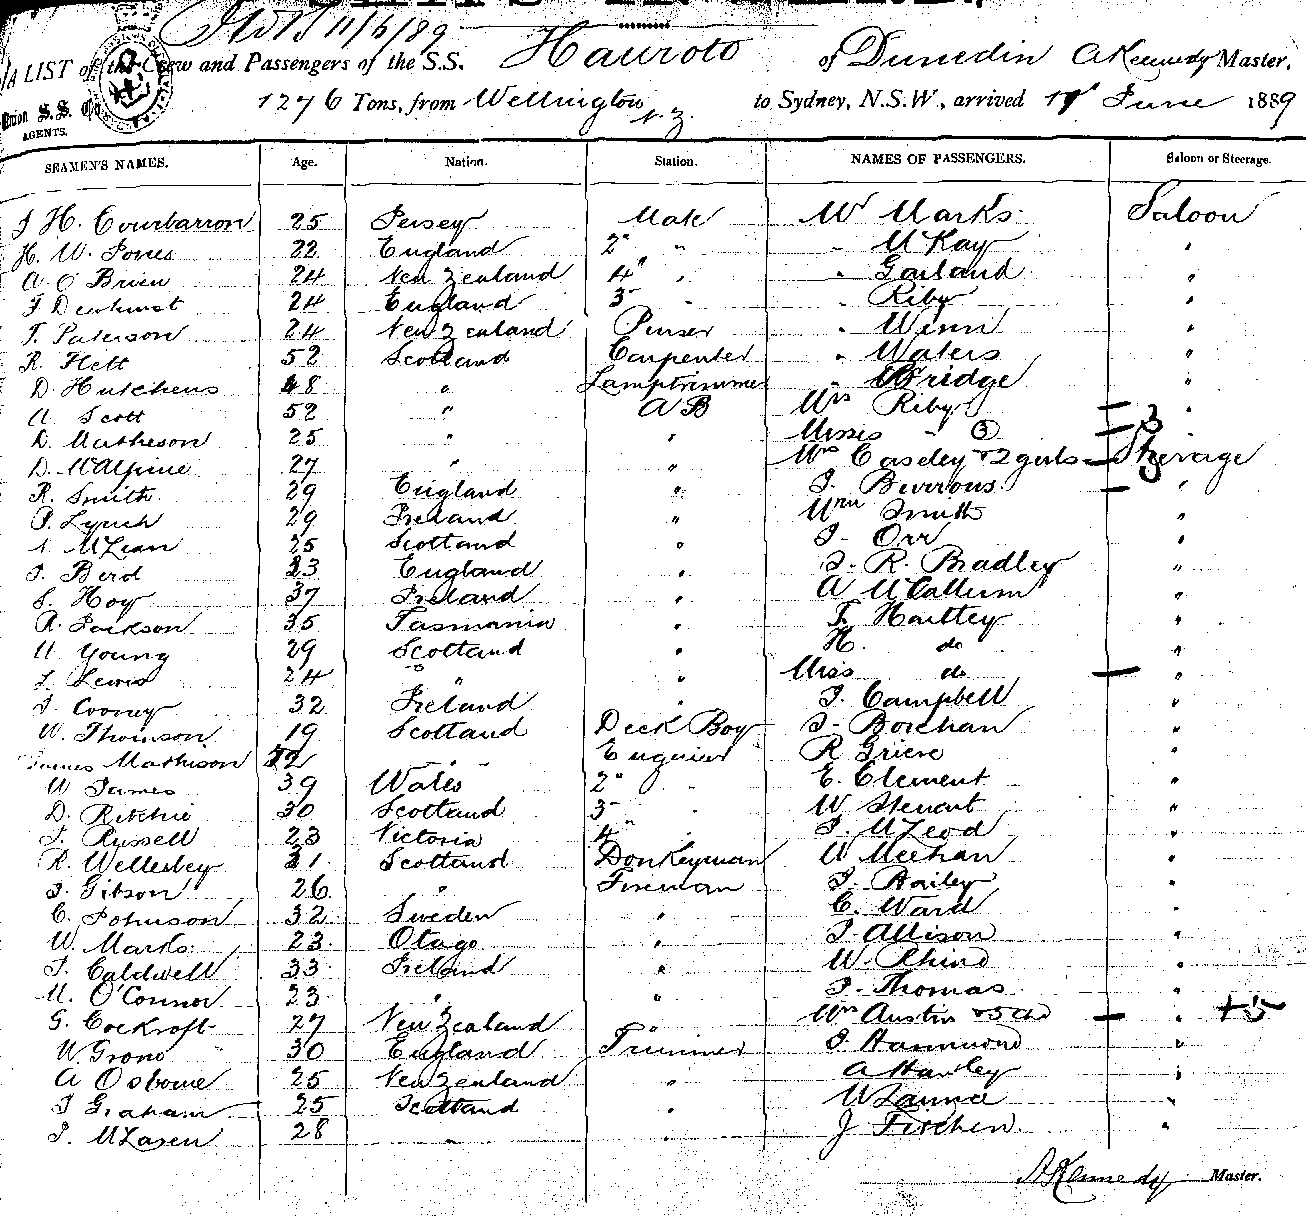 11/6/89
A LIST of the Crew and Passengers of the S.S. Hauroto of Dunedin A Kennedy Master,
Union S.S. Co AGENTS. 1276 Tons, from Wellington N.Z. to Sydney, N.S.W., arrived June 1889
SEAMEN'S NAMES. Age. Nation. Station. NAMES OF PASSENGERS. Saloon or Steerage.
J H. Courbarron 25 Jersey Mate Mr Marks Saloon
H. W. Jones 22 England 2nd " " McKay "
A O'Brien 24 New Zealand 4th " " Garland "
J Dewhurst 24 England 3 " " Riby "
T. Paterson 24 New Zealand Purser " Winn "
R. Flett 52 Scotland Carpenter " Waters "
D. Hutchens 48 " Lamptrimmer " Bridge "
A Scott 52 " A B Mrs Riby "
D. Matheson 25 " " Misses " 3 "
D. McAlpine 27 " " Mrs Caseley & 2 girls Steerage
R. Smith 29 England " J. Burrows "
P. Lynch 29 Ireland " Wm Smith "
McLean 25 Scotland " J. Orr "
J. Bird 23 England " J. R. Bradley "
S. Hoy 37 Ireland " A McCallum "
R. Jackson 35 Tasmania " T. Hartley "
Young 29 Scotland " H. do "
J. Lewis 24 " " Miss do "
J. Cooney 32 Ireland " J. Campbell "
W. Thomson 19 Scotland Deck Boy J. Borehan "
James Mathison 52 " Engineer R Grieve "
W James 39 Wales 2nd " E. Element "
D. Ritchie 30 Scotland 3 " W Stewart "
J. Russell 23 Victoria 4 " J. McLeod "
R. Wellesley 31 Scotland Donkeyman W Meehan "
J. Gibson 26 " Fireman J. Bailey "
C. Johnson 32 Sweden " C. Ward "
W. Marks 23 Otago " J. Allison "
J. Caldwell 33 Ireland " W. Rhind "
M. O'Connor 23 " " J. Thomas "
G. Cockroft 27 New Zealand " Mrs Austin & 5 chd " +5
W Grono 30 England Trimmer J. Hammond "
A Osborne 25 New Zealand " A Hartley "
J Graham 25 Scotland " W "
J. McLaren 28 " " J Fischen "
A Kennedy Master.